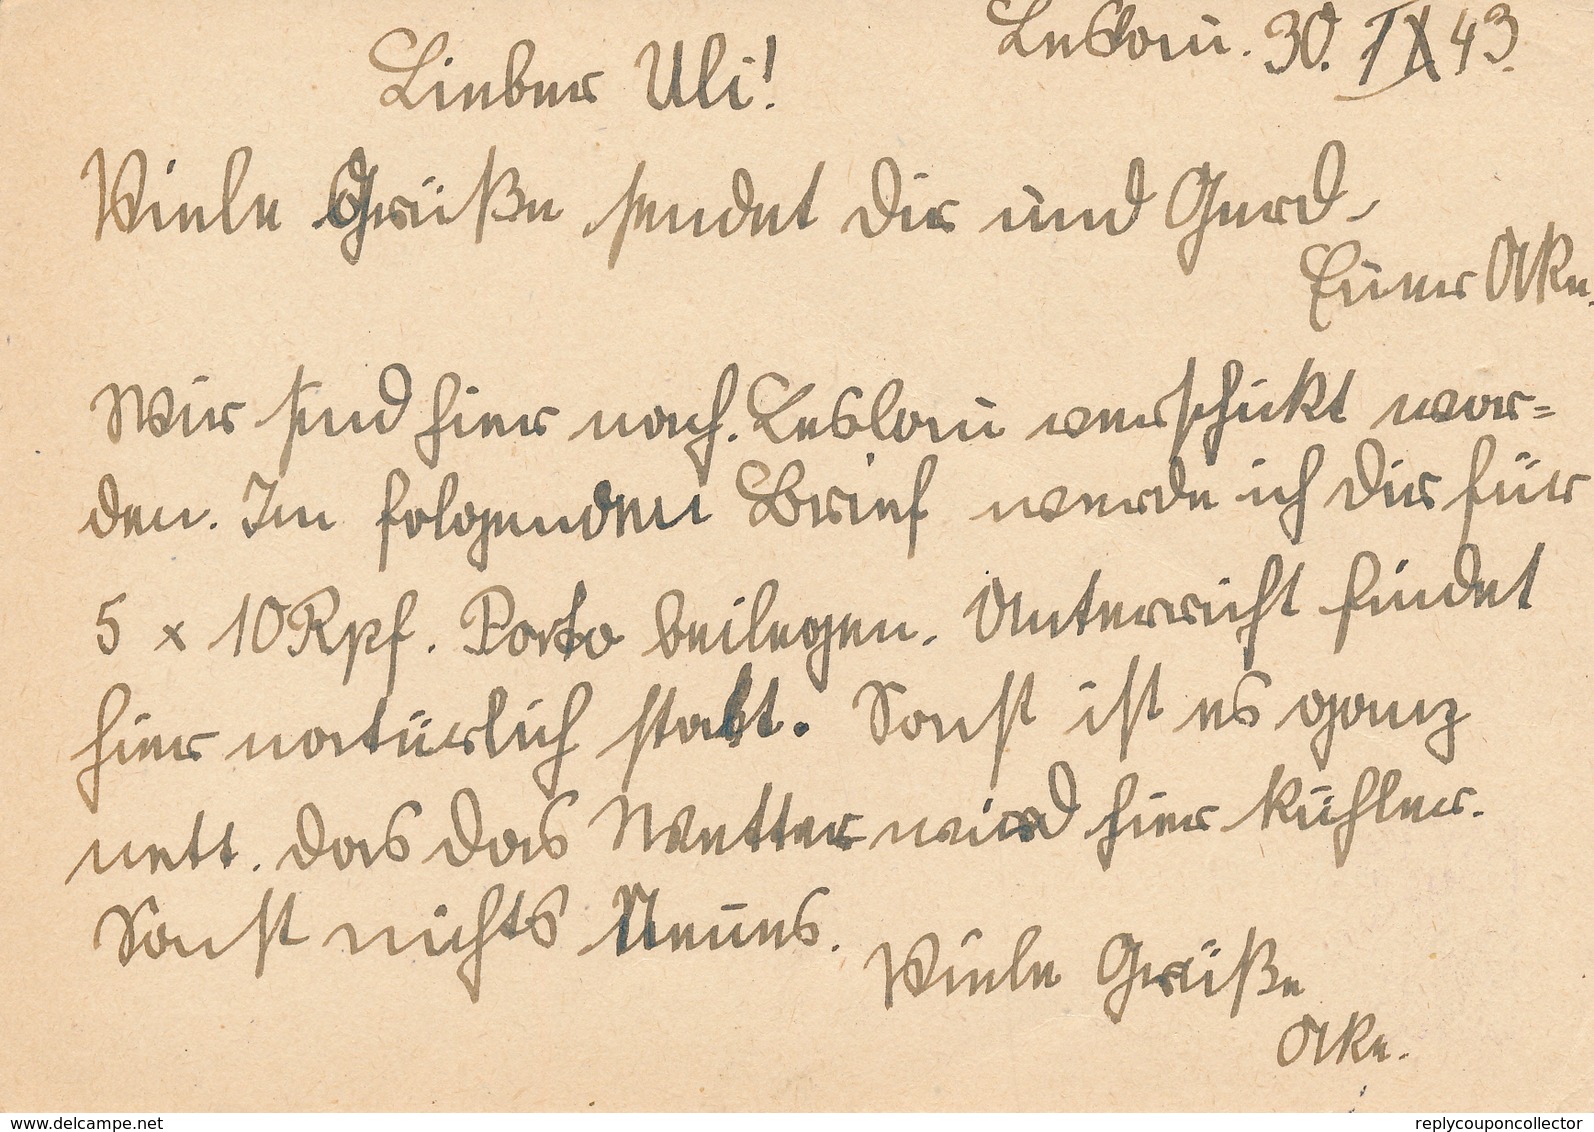 Leslau. 30. IX 43.
Lieber Uli!
Viele Grüße sendet Dir und Gerd,
Euer Ake.
Wir sind hier nach Leslau verschickt wor=
den. Im folgenden Brief werde ich Dir für
5 x 10 Rpf. Porto beilegen. Unterricht findet
hier natürlich statt. Sonst ist es ganz
nett. das das Wetter wird hier kühler.
Sonst nichts Neues.
Viele Grüße
Ake.
www.delcampe.net
replycouponcollector